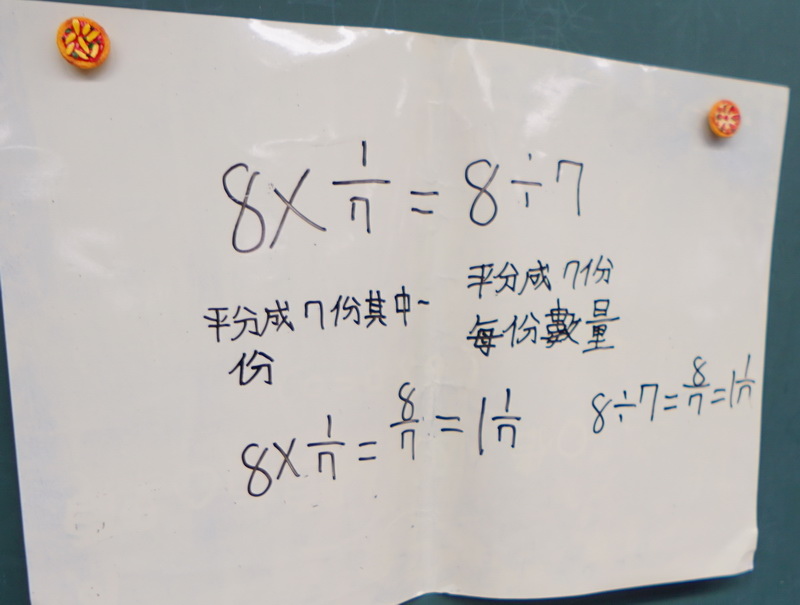 8×1/7=8÷7
平分成7份其中一
份
平分成7份
每份數量
8×1/7=8/7=1 1/7
8÷7=8/7=1 1/7